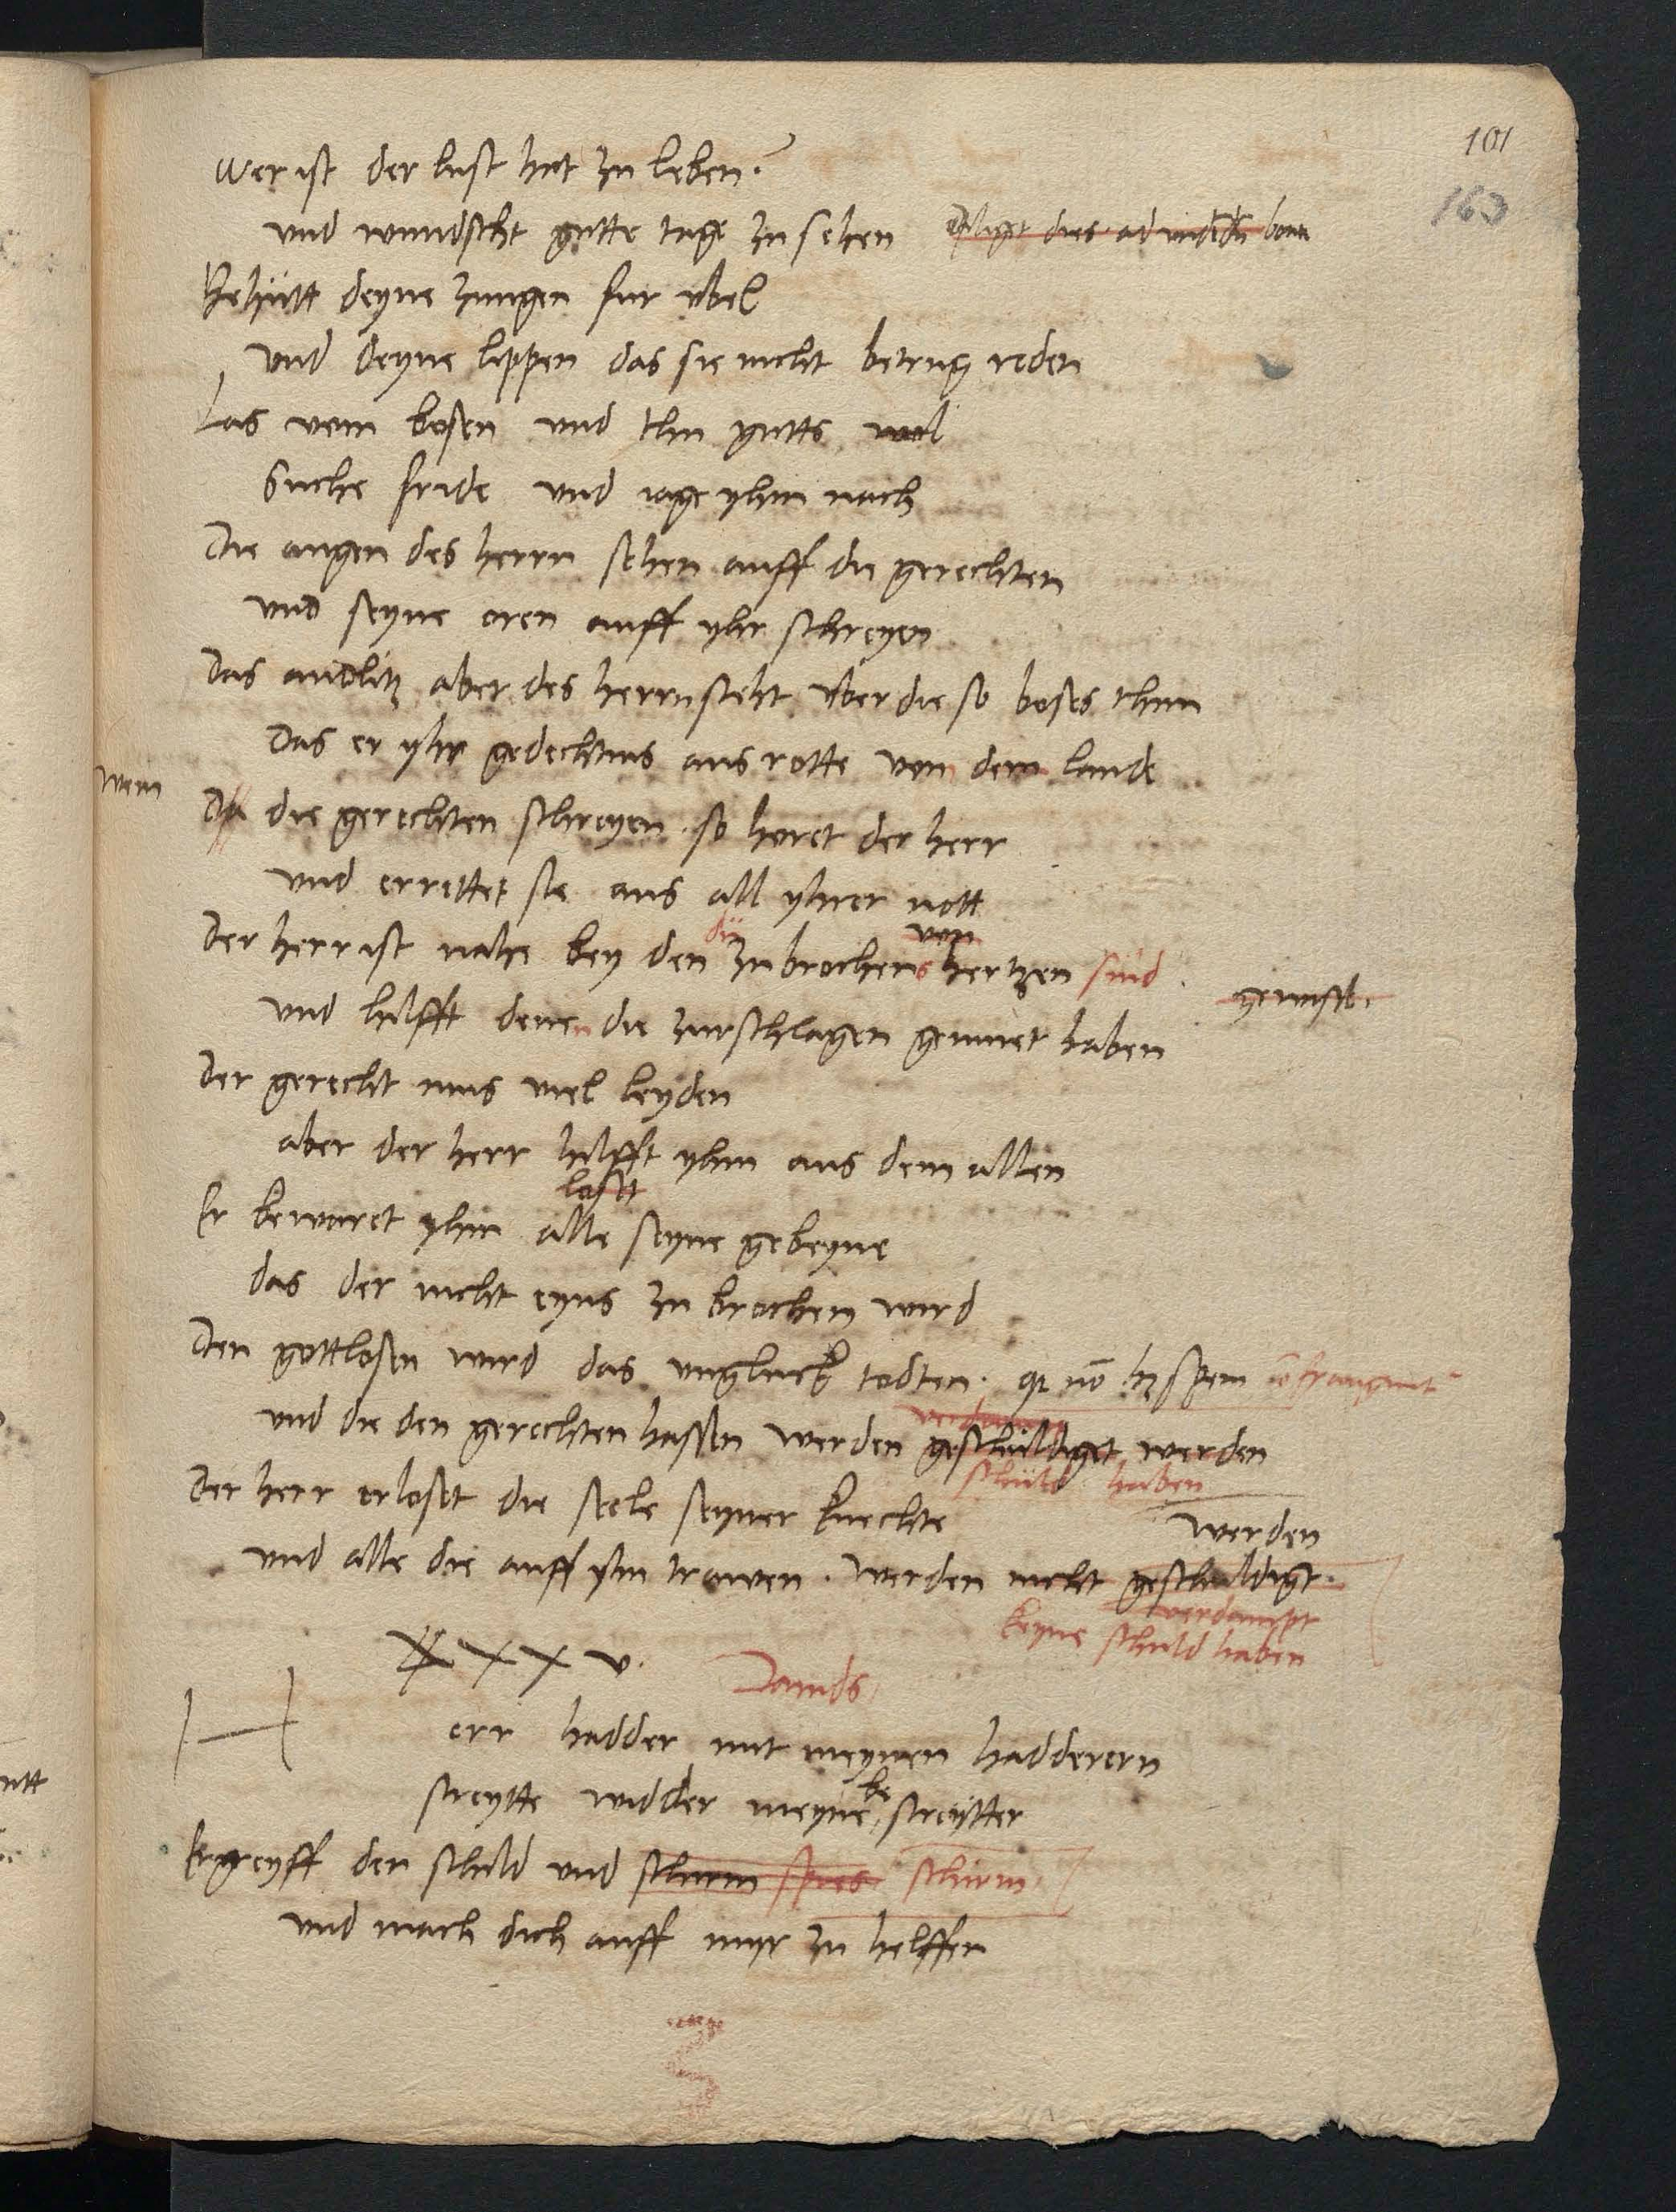 101
163
Wer ist der lust hat zu leben?
und wundscht gutte tage zu sehen
Behütt deyne zungen fur ubel
und deyne lippen das sie nicht betrug reden
Las vom bosen und thu gutts wol
Suche fride und iage yhm nach
Die augen des herrn sehen auff die gerechten
und seyne oren auff yhr schreyen
Das andlitz aber des herrn steht uber die so boses thun
Das er yhr gedechtnis aus rotte von dem lande
Wenn
die gerechten schreyen so horet der herr
und errettet sie aus all yhrer nott
die von
Der herr ist nahe bey den zubrochens hertzen sind
und hilfft denen die zurschlagen gemuet haben
Der gerecht mus viel leyden
aber der herr hilfft yhm aus dem allen
loset
Er bewaret yhm alle seyne gebeyne
das der nicht eyns zu brochen wird
Den gottlosen wird das ungluck todten
und die den gerechten hassen werden geschuldiget werden
schuld haben
Der herr erloset die seele seyner knechte
werden
und alle die auff yhn trawen. werden nicht geschuldigt.
verdampt
keyne schuld haben
XXXV.
Davids
H
err hadder mit meynen hadderern
be
streytte widder meyne streytter
Ergreyff den schild und schirm spies schirm
und mach dich auff myr zu helffen